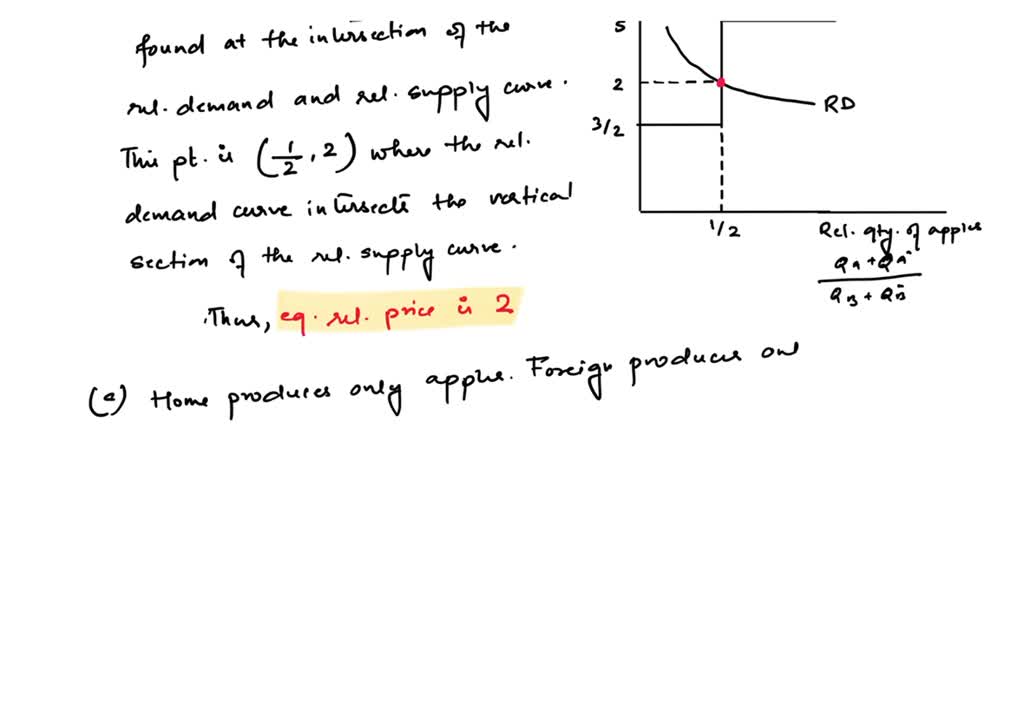 found at the intersection of the
rel. demand and rel. supply curve.
This pt. is (1/2, 2) where the rel.
demand curve intersects the vertical
section of the rel. supply curve.
Thus, eq. rel. price is 2
(c) Home produces only apples. Foreign produces onl
5
2
3/2
RD
1/2
Rel. qty. of apples
QA + QA*
QB + QB*